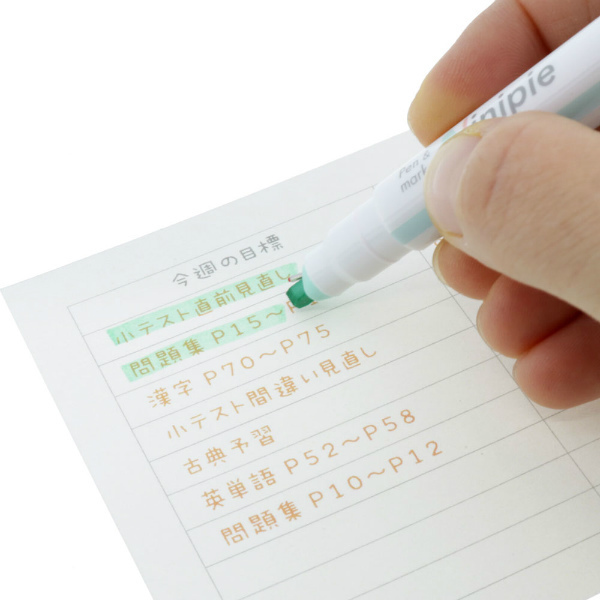 今週の目標
小テスト直前見直し
問題集 P15～
漢字 P70～P75
小テスト間違い見直し
古典予習
英単語 P52～P58
問題集 P10～P12
Pen &